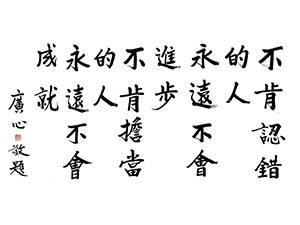 不肯認錯
的人
永遠不會
進步
不肯擔當
的人
永遠不會
成就
廣心敬題